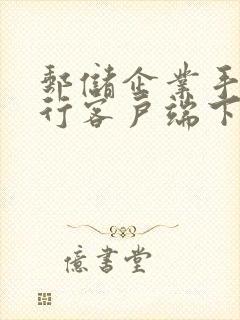 郵儲企業手
行客戶端下
億書堂